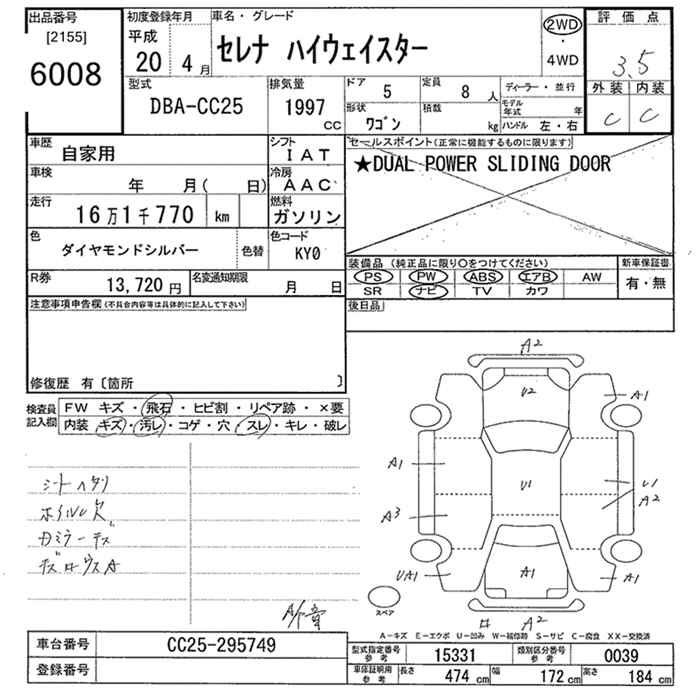 出品番号
[2155]
6008
初度登録年月
平成
20 4月
車名・グレード
セレナ ハイウェイスター
2WD
・
4WD
評価点
3.5
外装 内装
C C
型式
DBA-CC25
排気量
1997
CC
ドア
5
定員
8 人
ディーラー・並行
形状
ワゴン
積載
kg
モデル年式 年
ハンドル 左・右
車歴
自家用
シフト
IAT
セールスポイント(正常に機能するものに限ります)
★DUAL POWER SLIDING DOOR
車検
年 月( 日)
冷房
AAC
走行
16万1千770 km
燃料
ガソリン
色
ダイヤモンドシルバー
色替
色コード
KY0
装備品 (純正品に限り○をつけてください)
新車保証書
PS PW ABS エアB AW
SR ナビ TV カワ
有・無
R券
13,720円
名変通知期限
月 日
後日品
注意事項申告欄(不具合内容等は具体的に記入して下さい)
修復歴 有〔箇所 〕
検査員
記入欄
FW キズ・飛石・ヒビ割・リペア跡・×要
内装 キズ・汚レ・コゲ・穴・スレ・キレ・破レ
シートヘタリ
ホイルC欠
A2
U2
A1
A1
U1
U1
A2
A3
UA1
A1
A1
スペア
A2
A-キズ E-エクボ U-凹み W-補修跡 S-サビ C-腐食 XX-交換済
車台番号
CC25-295749
登録番号
型式指定番号
参考
15331
類別区分番号
参考
0039
車庫証明用
参考
長さ 474 cm
幅 172 cm
高さ 184 cm